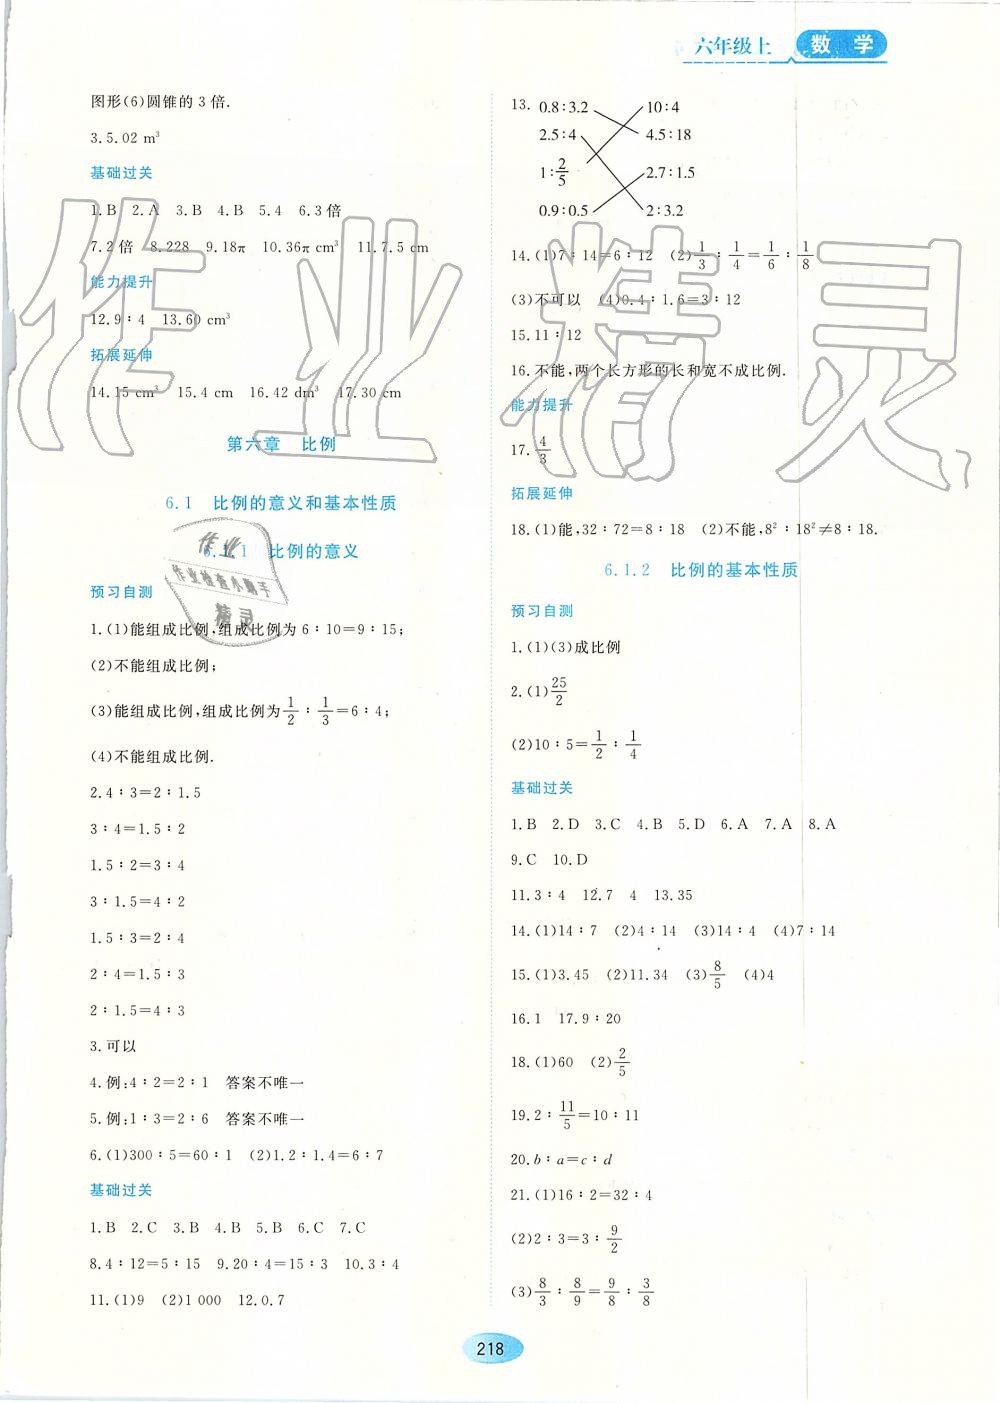 六年级上 数学
图形(6)圆锥的3倍.
3.5.02 m³
基础过关
1.B 2.A 3.B 4.B 5.4 6.3倍
7.2倍 8.228 9.18π 10.36π cm³ 11.7.5 cm
能力提升
12.9∶4 13.60 cm³
拓展延伸
14.15 cm³ 15.4 cm 16.42 dm³ 17.30 cm
第六章 比例
6.1 比例的意义和基本性质
6.1.1 比例的意义
预习自测
1.(1)能组成比例,组成比例为6∶10=9∶15;
(2)不能组成比例;
(3)能组成比例,组成比例为1/2∶1/3=6∶4;
(4)不能组成比例.
2.4∶3=2∶1.5
3∶4=1.5∶2
1.5∶2=3∶4
3∶1.5=4∶2
1.5∶3=2∶4
2∶4=1.5∶3
2∶1.5=4∶3
3.可以
4.例:4∶2=2∶1 答案不唯一
5.例:1∶3=2∶6 答案不唯一
6.(1)300∶5=60∶1 (2)1.2∶1.4=6∶7
基础过关
1.B 2.C 3.B 4.B 5.B 6.C 7.C
8.4∶12=5∶15 9.20∶4=15∶3 10.3∶4
11.(1)9 (2)1 000 12.0.7
13. 0.8∶3.2 10∶4
2.5∶4 4.5∶18
1∶2/5 2.7∶1.5
0.9∶0.5 2∶3.2
14.(1)7∶14=6∶12 (2)1/3∶1/4=1/6∶1/8
(3)不可以 (4)0.4∶1.6=3∶12
15.11∶12
16.不能,两个长方形的长和宽不成比例.
能力提升
17.4/3
拓展延伸
18.(1)能,32∶72=8∶18 (2)不能,8²∶18²≠8∶18.
6.1.2 比例的基本性质
预习自测
1.(1)(3)成比例
2.(1)25/2
(2)10∶5=1/2∶1/4
基础过关
1.B 2.D 3.C 4.B 5.D 6.A 7.A 8.A
9.C 10.D
11.3∶4 12.7 4 13.35
14.(1)14∶7 (2)4∶14 (3)14∶4 (4)7∶14
15.(1)3.45 (2)11.34 (3)8/5 (4)4
16.1 17.9∶20
18.(1)60 (2)2/5
19.2∶11/5=10∶11
20.b∶a=c∶d
21.(1)16∶2=32∶4
(2)2∶3=3∶9/2
(3)8/3∶8/9=9/8∶3/8
218
作业精灵
作业
作业检查小助手
精灵